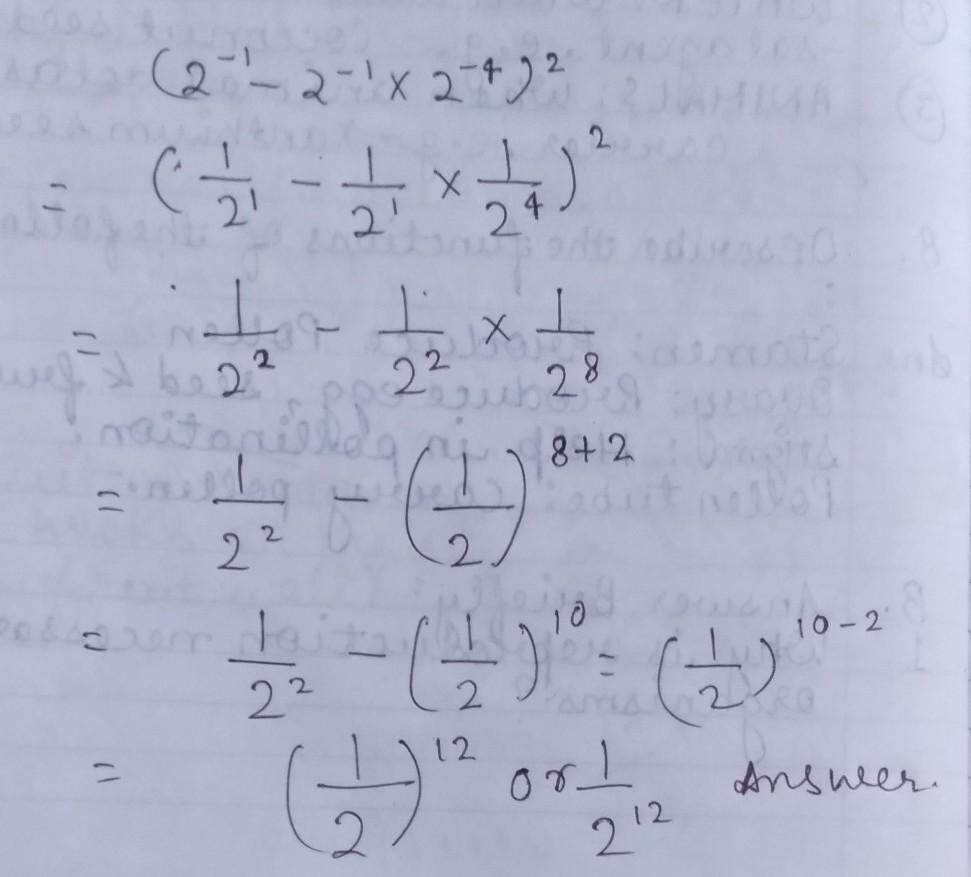 (2⁻¹ − 2⁻¹ × 2⁻⁴)²
= (1/2¹ − 1/2¹ × 1/2⁴)²
= 1/2² − 1/2² × 1/2⁸
= 1/2² − (1/2)⁸⁺²
= 1/2² − (1/2)¹⁰ = (1/2)¹⁰⁻²
= (1/2)¹² or 1/2¹² Answer.